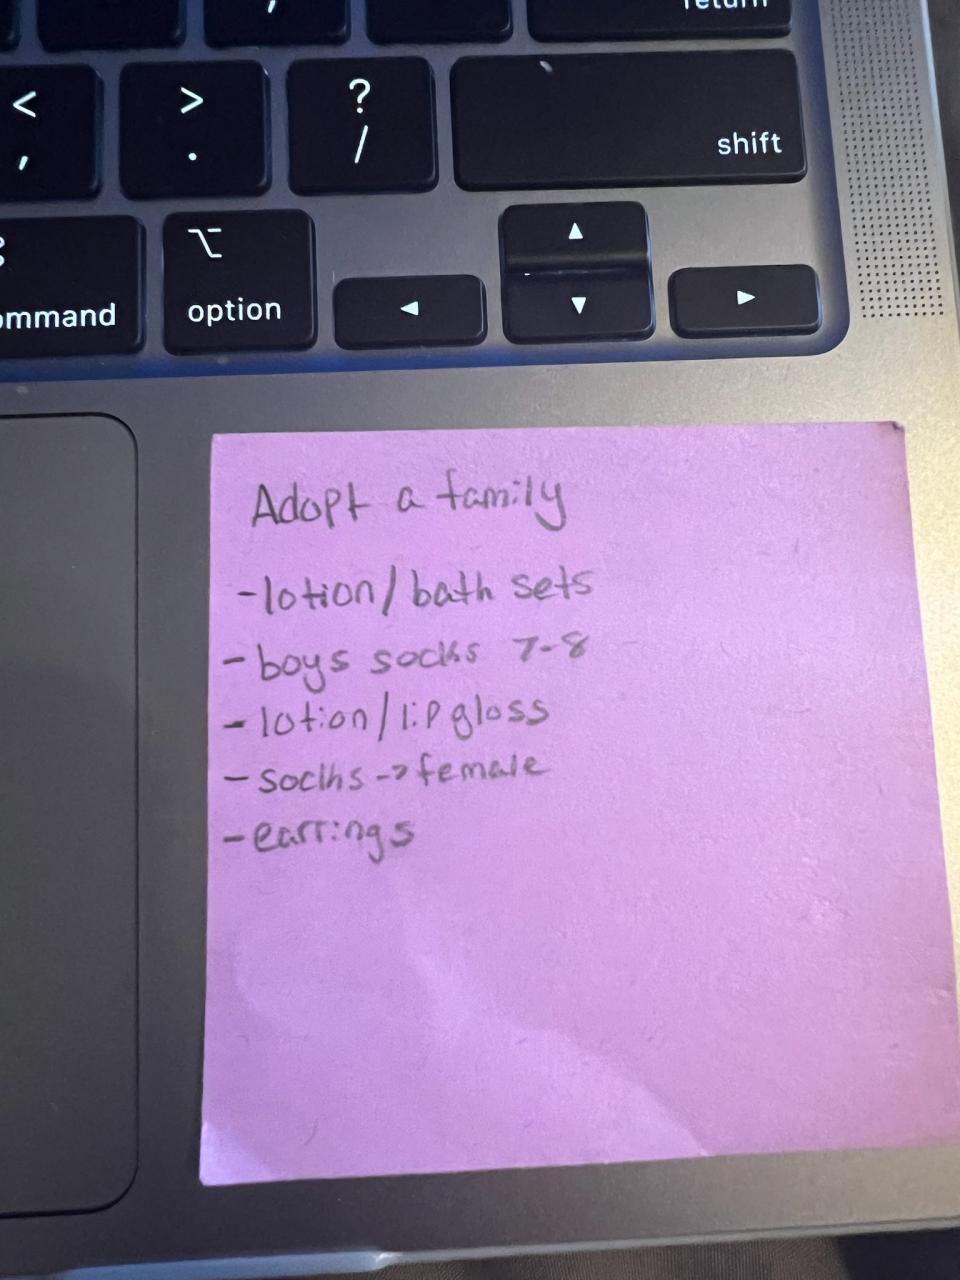 return
< > ? shift
, . /
⌥ ▲
ommand option ◄ ▼ ►
Adopt a family
-lotion/bath sets
-boys socks 7-8
-lotion/lip gloss
-socks->female
-earrings